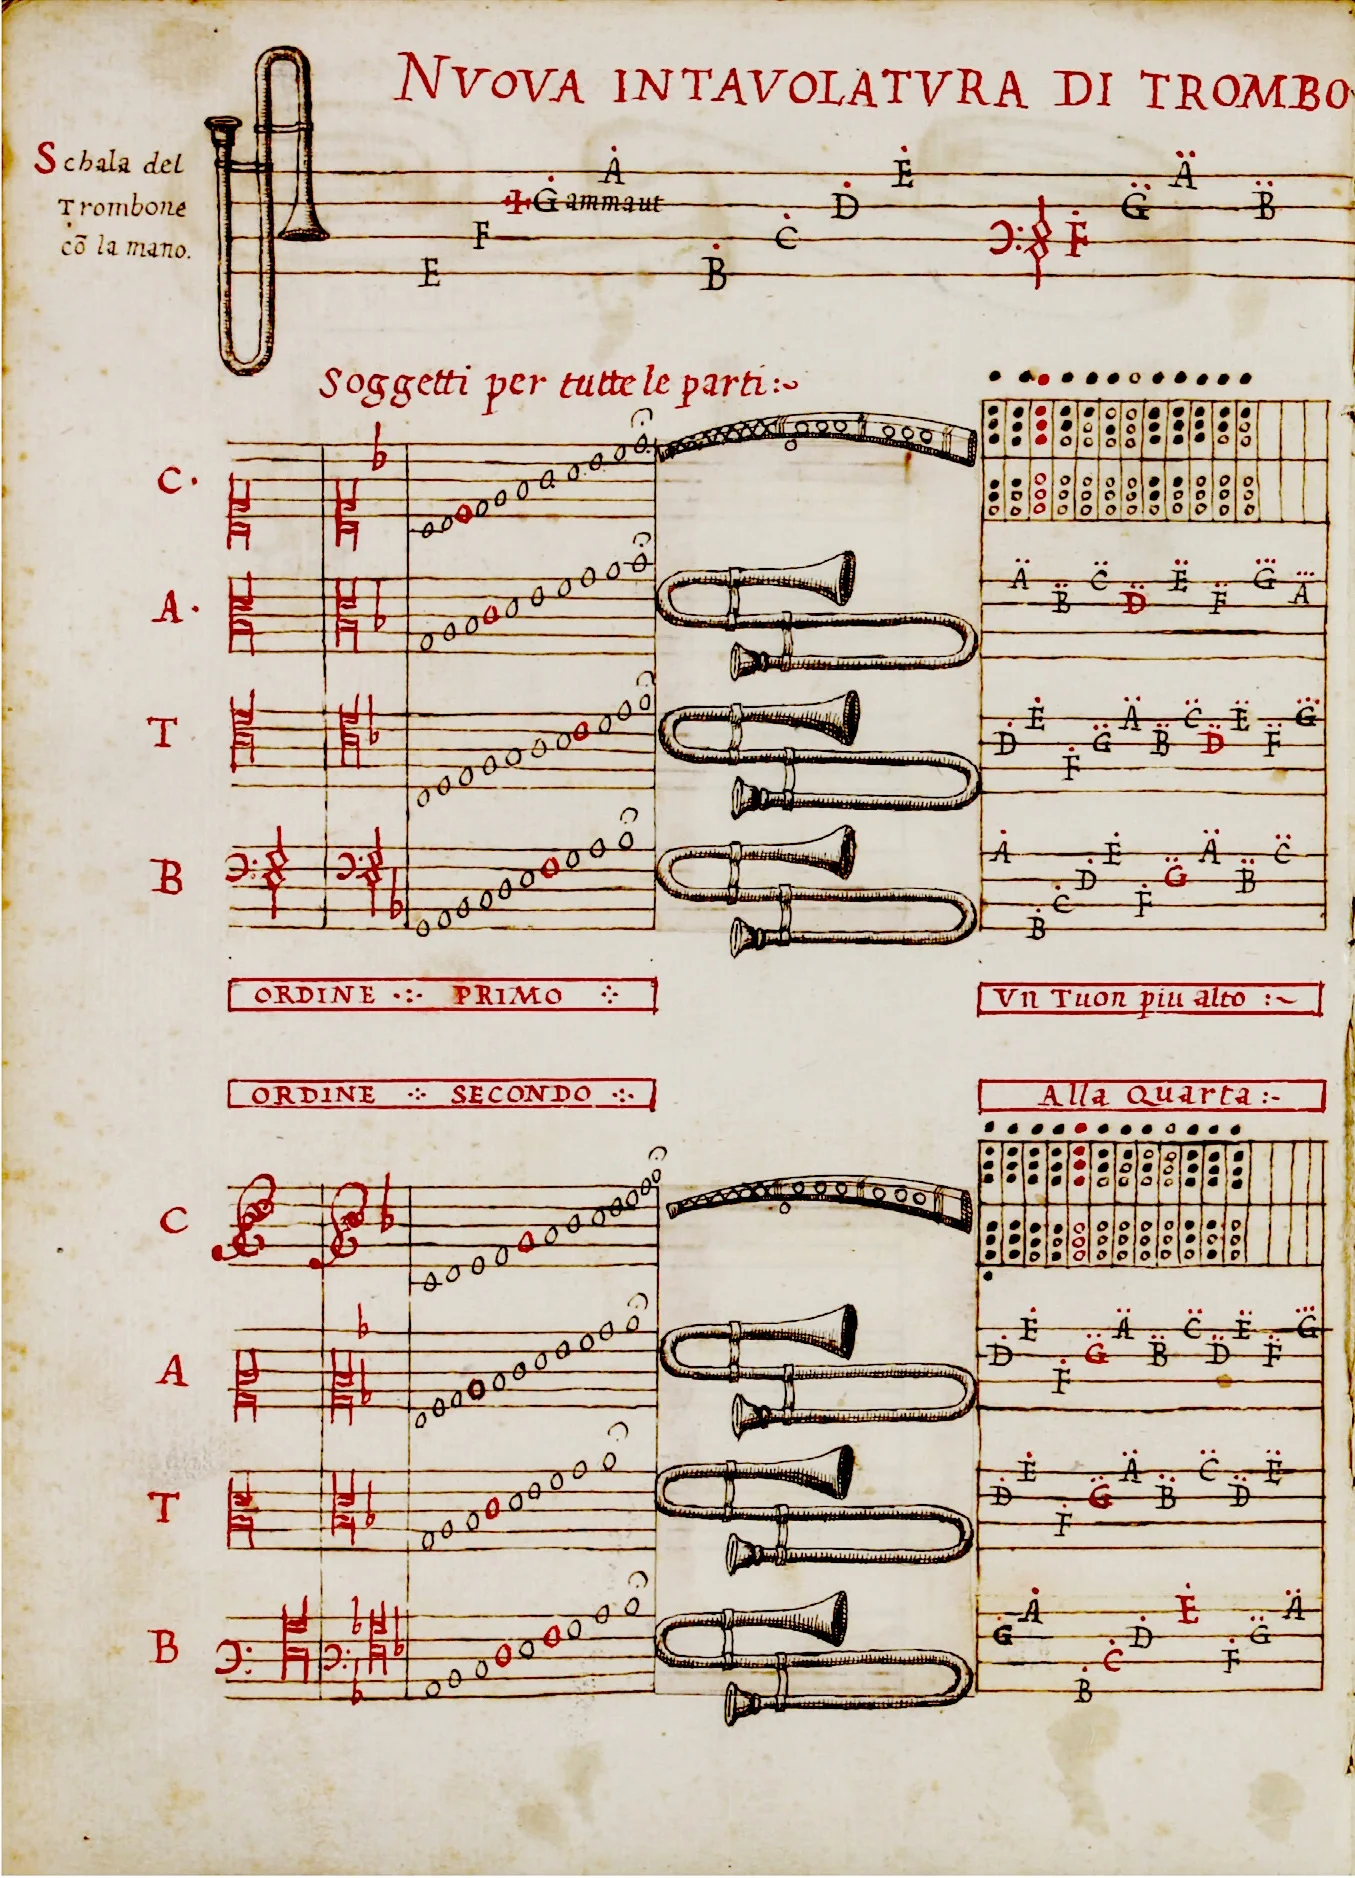 NVOVA INTAVOLATVRA DI TROMBO
Schala del
Trombone
cõ la mano.
Ȧ Ė Ä
Gammaut Ḋ G̈ B̈
F Ċ Ḟ
E Ḃ
Soggetti per tutte le parti:~
C·
A·
Ä C̈ Ë G⃛
B̈ D̈ F̈ A⃛
T
Ė Ä C̈ Ë G⃛
Ḋ G̈ B̈ D̈ F̈
Ḟ
B
Ȧ Ė Ä C̈
Ḋ G̈ B̈
Ċ Ḟ
Ḃ
ORDINE PRIMO
Vn Tuon piu alto :~
ORDINE SECONDO
Alla Quarta :-
C
A
Ė Ä C̈ Ë G⃛
Ḋ G̈ B̈ D̈ F̈
Ḟ
T
Ė Ä C̈ Ë
Ḋ G̈ B̈ D̈
Ḟ
B
Ȧ Ė Ä
Ġ Ḋ G̈
Ċ Ḟ
Ḃ